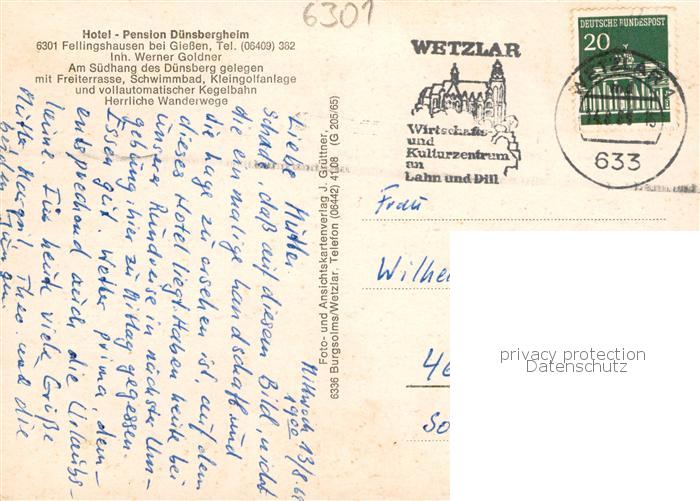 6301
Hotel - Pension Dünsbergheim
6301 Fellingshausen bei Gießen, Tel. (06409) 382
Inh. Werner Goldner
Am Südhang des Dünsberg gelegen
mit Freiterrasse, Schwimmbad, Kleingolfanlage
und vollautomatischer Kegelbahn
Herrliche Wanderwege
Mittwoch 13/8.
1900
Liebe Mutter.
Schade, daß auf diesem Bild, nicht
die einmalige Landschaft und
die Lage zu ersehen ist, auf dem
dieses Hotel liegt. Haben heute bei
unsere Rundreise in nächster Um-
gebung, hier zu Mittag gegessen.
Essen gut. Wetter prima, dem-
entsprechend auch die Urlaubs-
laune. Für heute viele Grüße
Mutter, Margot, Theo. und die
beiden Jungen.
Foto- und Ansichtskartenverlag J. Grüttner,
6336 Burgsolms/Wetzlar. Telefon (06442) 41 08 (G 205/65)
WETZLAR
Wirtschafts-
und
Kulturzentrum
an
Lahn und Dill
DEUTSCHE BUNDESPOST
20
WETZLAR
633
Frau
Wilhe
privacy protection
Datenschutz